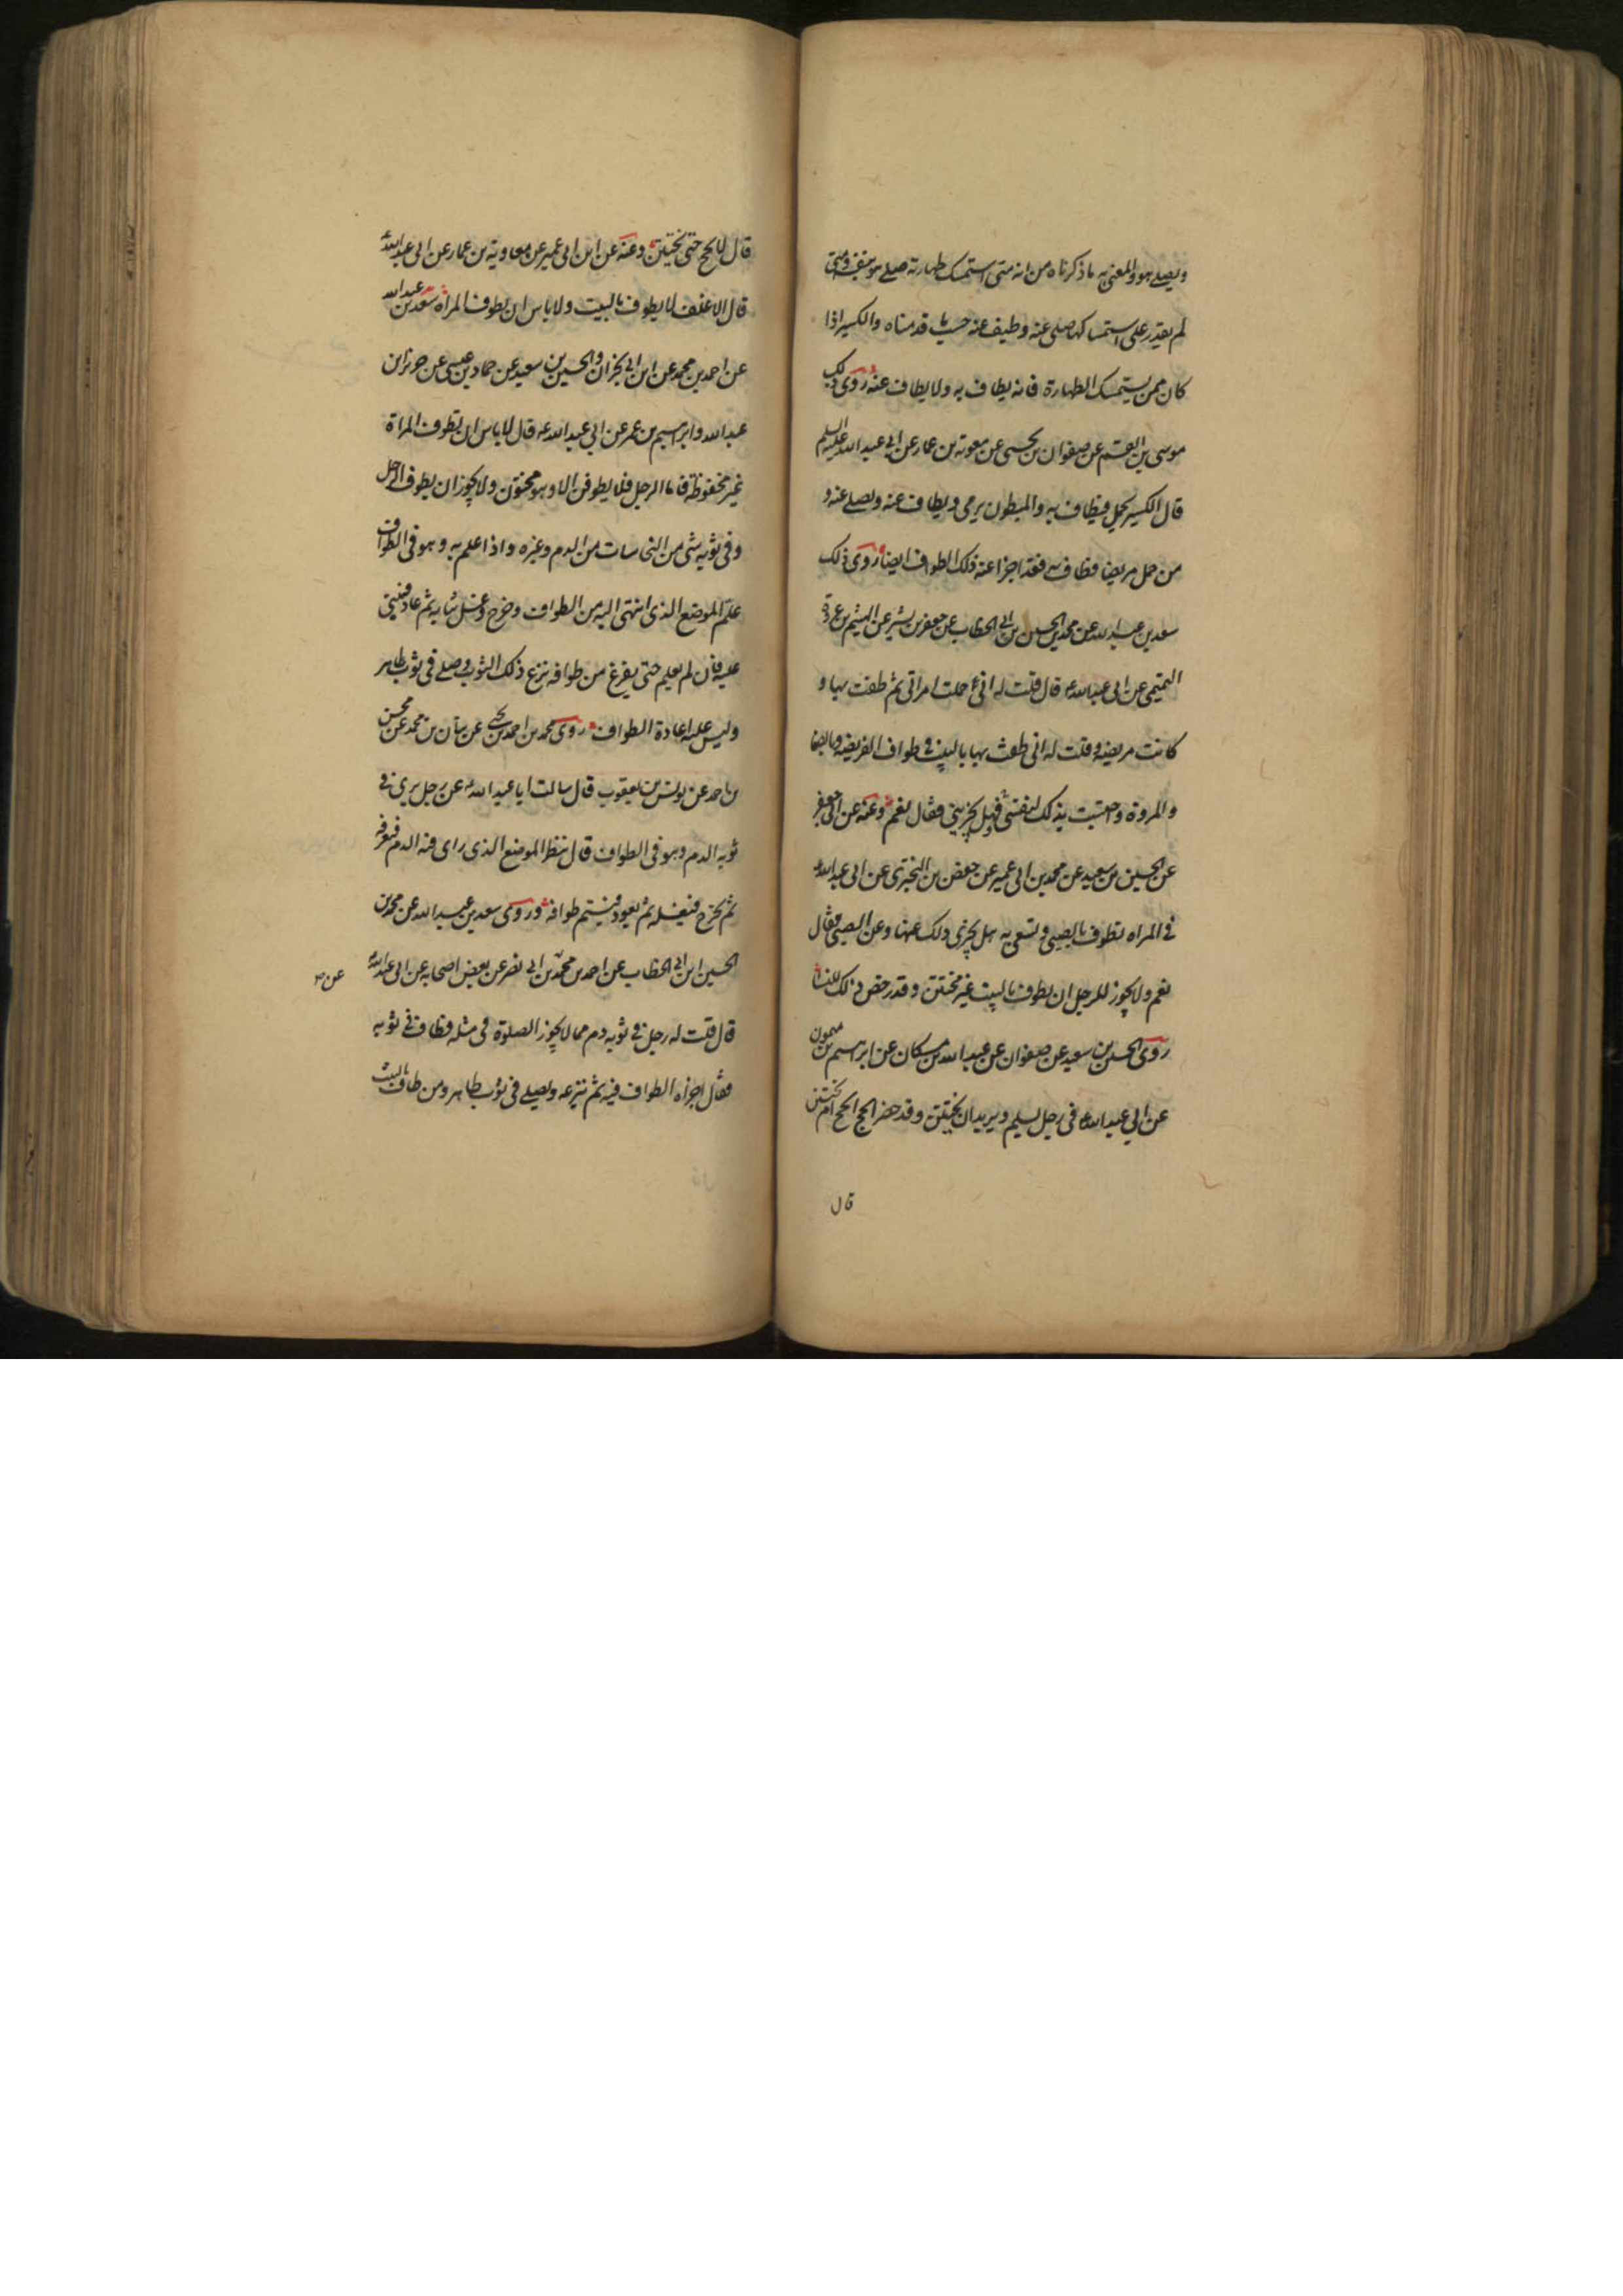 ويصلي هو والمعني به ما ذكرناه من انه متى استمسك طهارته صلى هو بنفسه ومتى
لم يقدر على استمساكها صلي عنه وطيف عنه حسب ما قدمناه والكسير اذا
كان ممن يستمسك الطهارة فانه يطاف به ولا يطاف عنه روى ذلك
موسى بن القسم عن صفوان بن يحيى عن معوية بن عمار عن ابي عبد الله عليه السلم
قال الكسير يحمل فيطاف به والمبطون يرمى ويطاف عنه ويصلي عنه و
من حمل مريضا فطاف به فقد اجزا عنه ذلك الطواف ايضا روى ذلك
سعد بن عبد الله عن محمد بن الحسين بن ابي الخطاب عن جعفر بن بشير عن الهيثم بن عروة
التميمي عن ابي عبد الله ع قال قلت له اني حملت امراتي ثم طفت بها و
كانت مريضة وقلت له اني طفت بها بالبيت في طواف الفريضة وبالصفا
والمروة واحتسبت بذلك لنفسي فهل يجزيني فقال نعم وعنه عن ابي جعفر
عن الحسين بن سعيد عن محمد بن ابي عمير عن حفص بن البختري عن ابي عبد الله ع
في المراه تطوف بالصبي وتسعى به هل يجزي ذلك عنها وعن الصبي فقال
نعم ولا يجوز للرجل ان يطوف بالبيت غير مختتن وقد رخص ذلك للنسا
روى الحسين بن سعيد عن صفوان عن عبد الله بن مسكان عن ابراهيم بن ميمون
عن ابي عبد الله ع في رجل يسلم ويريد ان يختتن وقد حضر الحج الحج ام يختتن
قال
قال لا يحج حتى يختتن وعنه عن ابن ابي عمير عن معاوية بن عمار عن ابي عبد الله ع
قال الاغلف لا يطوف بالبيت ولا باس ان يطوف المراة سعد بن عبد الله
عن احمد بن محمد عن ابن ابي نجران والحسين بن سعيد عن حماد بن عيسى عن حريز بن
عبد الله وابراهيم بن عمر عن ابي عبد الله ع قال لا باس ان تطوف المراة
غير مخفوظة فاما الرجل فلا يطوفن الا وهو مختون ولا يجوز ان يطوف الرجل
وفي ثوبه شي من النجاسات من الدم وغيره واذا علم به وهو في الطواف
علم الموضع الذي انتهى اليه من الطواف وخرج وغسل ثيابه ثم عاد فبنى
عليه فان لم يعلم حتى يفرغ من طوافه نزع ذلك الثوب وصلى في ثوب طاهر
وليس عليه اعادة الطواف روى محمد بن احمد بن يحيى عن بنان بن محمد عن محسن
بن احمد عن يونس بن يعقوب قال سالت ابا عبد الله ع عن رجل يرى في
ثوبه الدم وهو في الطواف قال ينظر الموضع الذي راى فيه الدم فيعرفه
ثم يخرج فيغسله ثم يعود فيتم طوافه وروى سعد بن عبد الله عن محمد بن
الحسين ابن ابي الخطاب عن احمد بن محمد بن ابي نصر عن بعض اصحابه عن ابي عبد الله ع
قال قلت له رجل في ثوبه دم مما لا يجوز الصلوة في مثله فطاف في ثوبه
فقال اجزاه الطواف فيه ثم ينزعه ويصلي في ثوب طاهر ومن طاف بالبيت